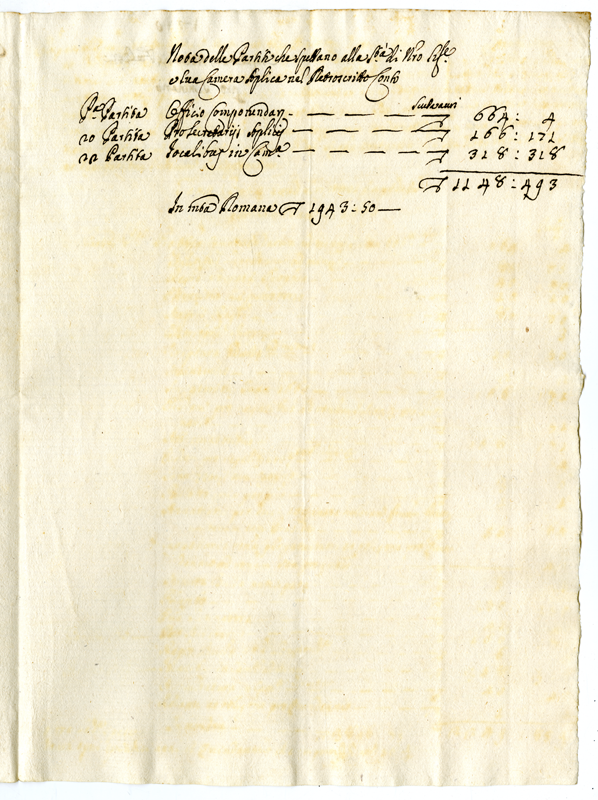 Nota delle Partite che spettano alla S.tà di Nro Sig.re
e sua Camera Aplica nel Retroscritto Conto
Scuti auri
P.a Partita Officio Componendar. — — — — 664 : 4
20 Partita Prosecretarijs Aplicis — — — — 166 : 171
22 Partita Jocalibus in Cam.a — — — — 318 : 318
1148 : 493
In mta Romana 1943 : 50 —